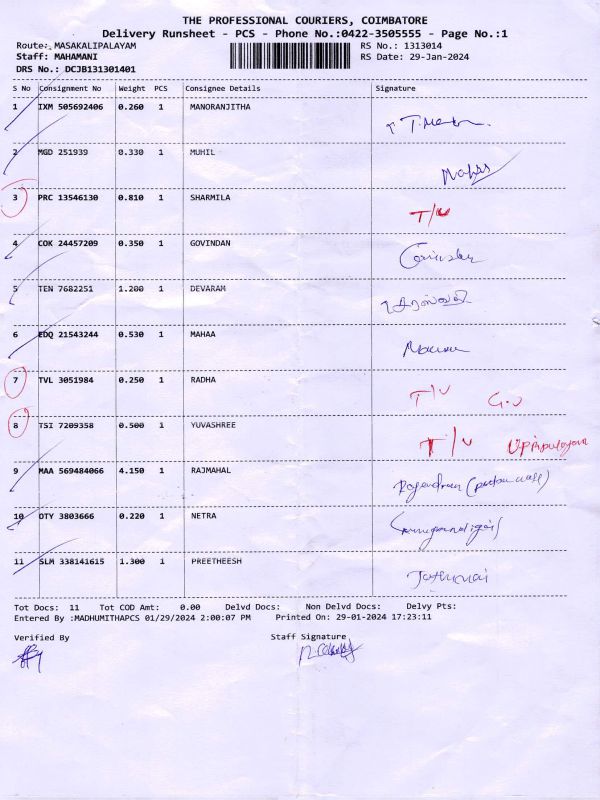 THE PROFESSIONAL COURIERS, COIMBATORE
Delivery Runsheet - PCS - Phone No.:0422-3505555 - Page No.:1
Route: MASAKALIPALAYAM RS No.: 1313014
Staff: MAHAMANI RS Date: 29-Jan-2024
DRS No.: DCJB131301401
S No Consignment No Weight PCS Consignee Details Signature
1 IXM 505692406 0.260 1 MANORANJITHA
2 MGD 251939 0.330 1 MUHIL
3 PRC 13546130 0.810 1 SHARMILA T/U
4 COK 24457209 0.350 1 GOVINDAN
5 TEN 7682251 1.200 1 DEVARAM
6 EDQ 21543244 0.530 1 MAHAA
7 TVL 3051984 0.250 1 RADHA T/U
8 TSI 7209358 0.500 1 YUVASHREE T/U
9 MAA 569484066 4.150 1 RAJMAHAL
10 OTY 3803666 0.220 1 NETRA
11 SLM 338141615 1.300 1 PREETHEESH
Tot Docs: 11 Tot COD Amt: 0.00 Delvd Docs: Non Delvd Docs: Delvy Pts:
Entered By :MADHUMITHAPCS 01/29/2024 2:00:07 PM Printed On: 29-01-2024 17:23:11
Verified By Staff Signature